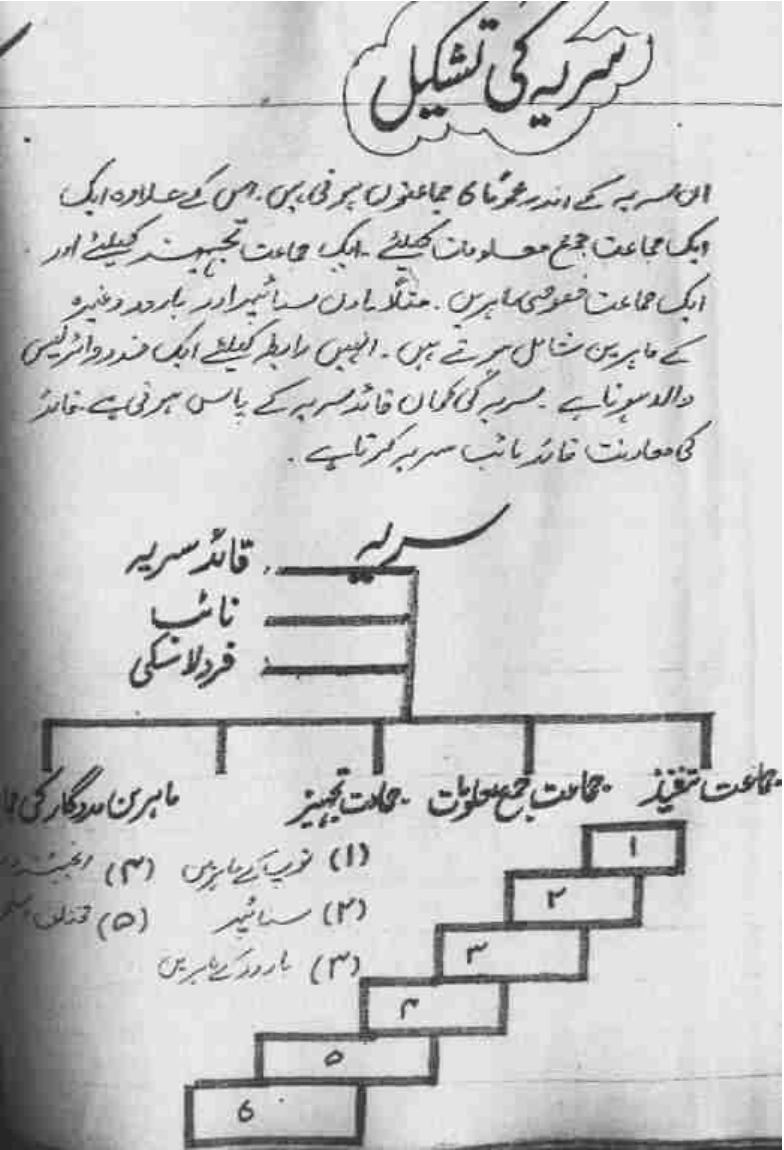 سریہ کی تشکیل
اس سریہ کے اندر عموماً 6 جماعتیں ہوتی ہیں۔ اس کے علاوہ ایک
ایک جماعت جمع معلومات کیلئے۔ ایک جماعت تجہیز کیلئے اور
ایک جماعت خصوصی ماہرین۔ مثلاً سنائپر اور بارود وغیرہ
کے ماہرین شامل ہوتے ہیں۔ انہیں رابطہ کیلئے ایک فرد وائرلیس
والا ہوتا ہے۔ سریہ کی کمان قائد سریہ کے پاس ہوتی ہے۔ قائد
کی معاونت قائد نائب سریہ کرتا ہے۔
سریہ
قائد سریہ
نائب
فرد لاسکی
جماعت تنفیذ
جماعت جمع معلومات
جماعت تجہیز
ماہرین مددگار کی
(۱) توپ کے ماہرین (۴)
(۲) سنائپر (۵)
(۳) بارود کے ماہرین
۱
۲
۳
۴
۵
6